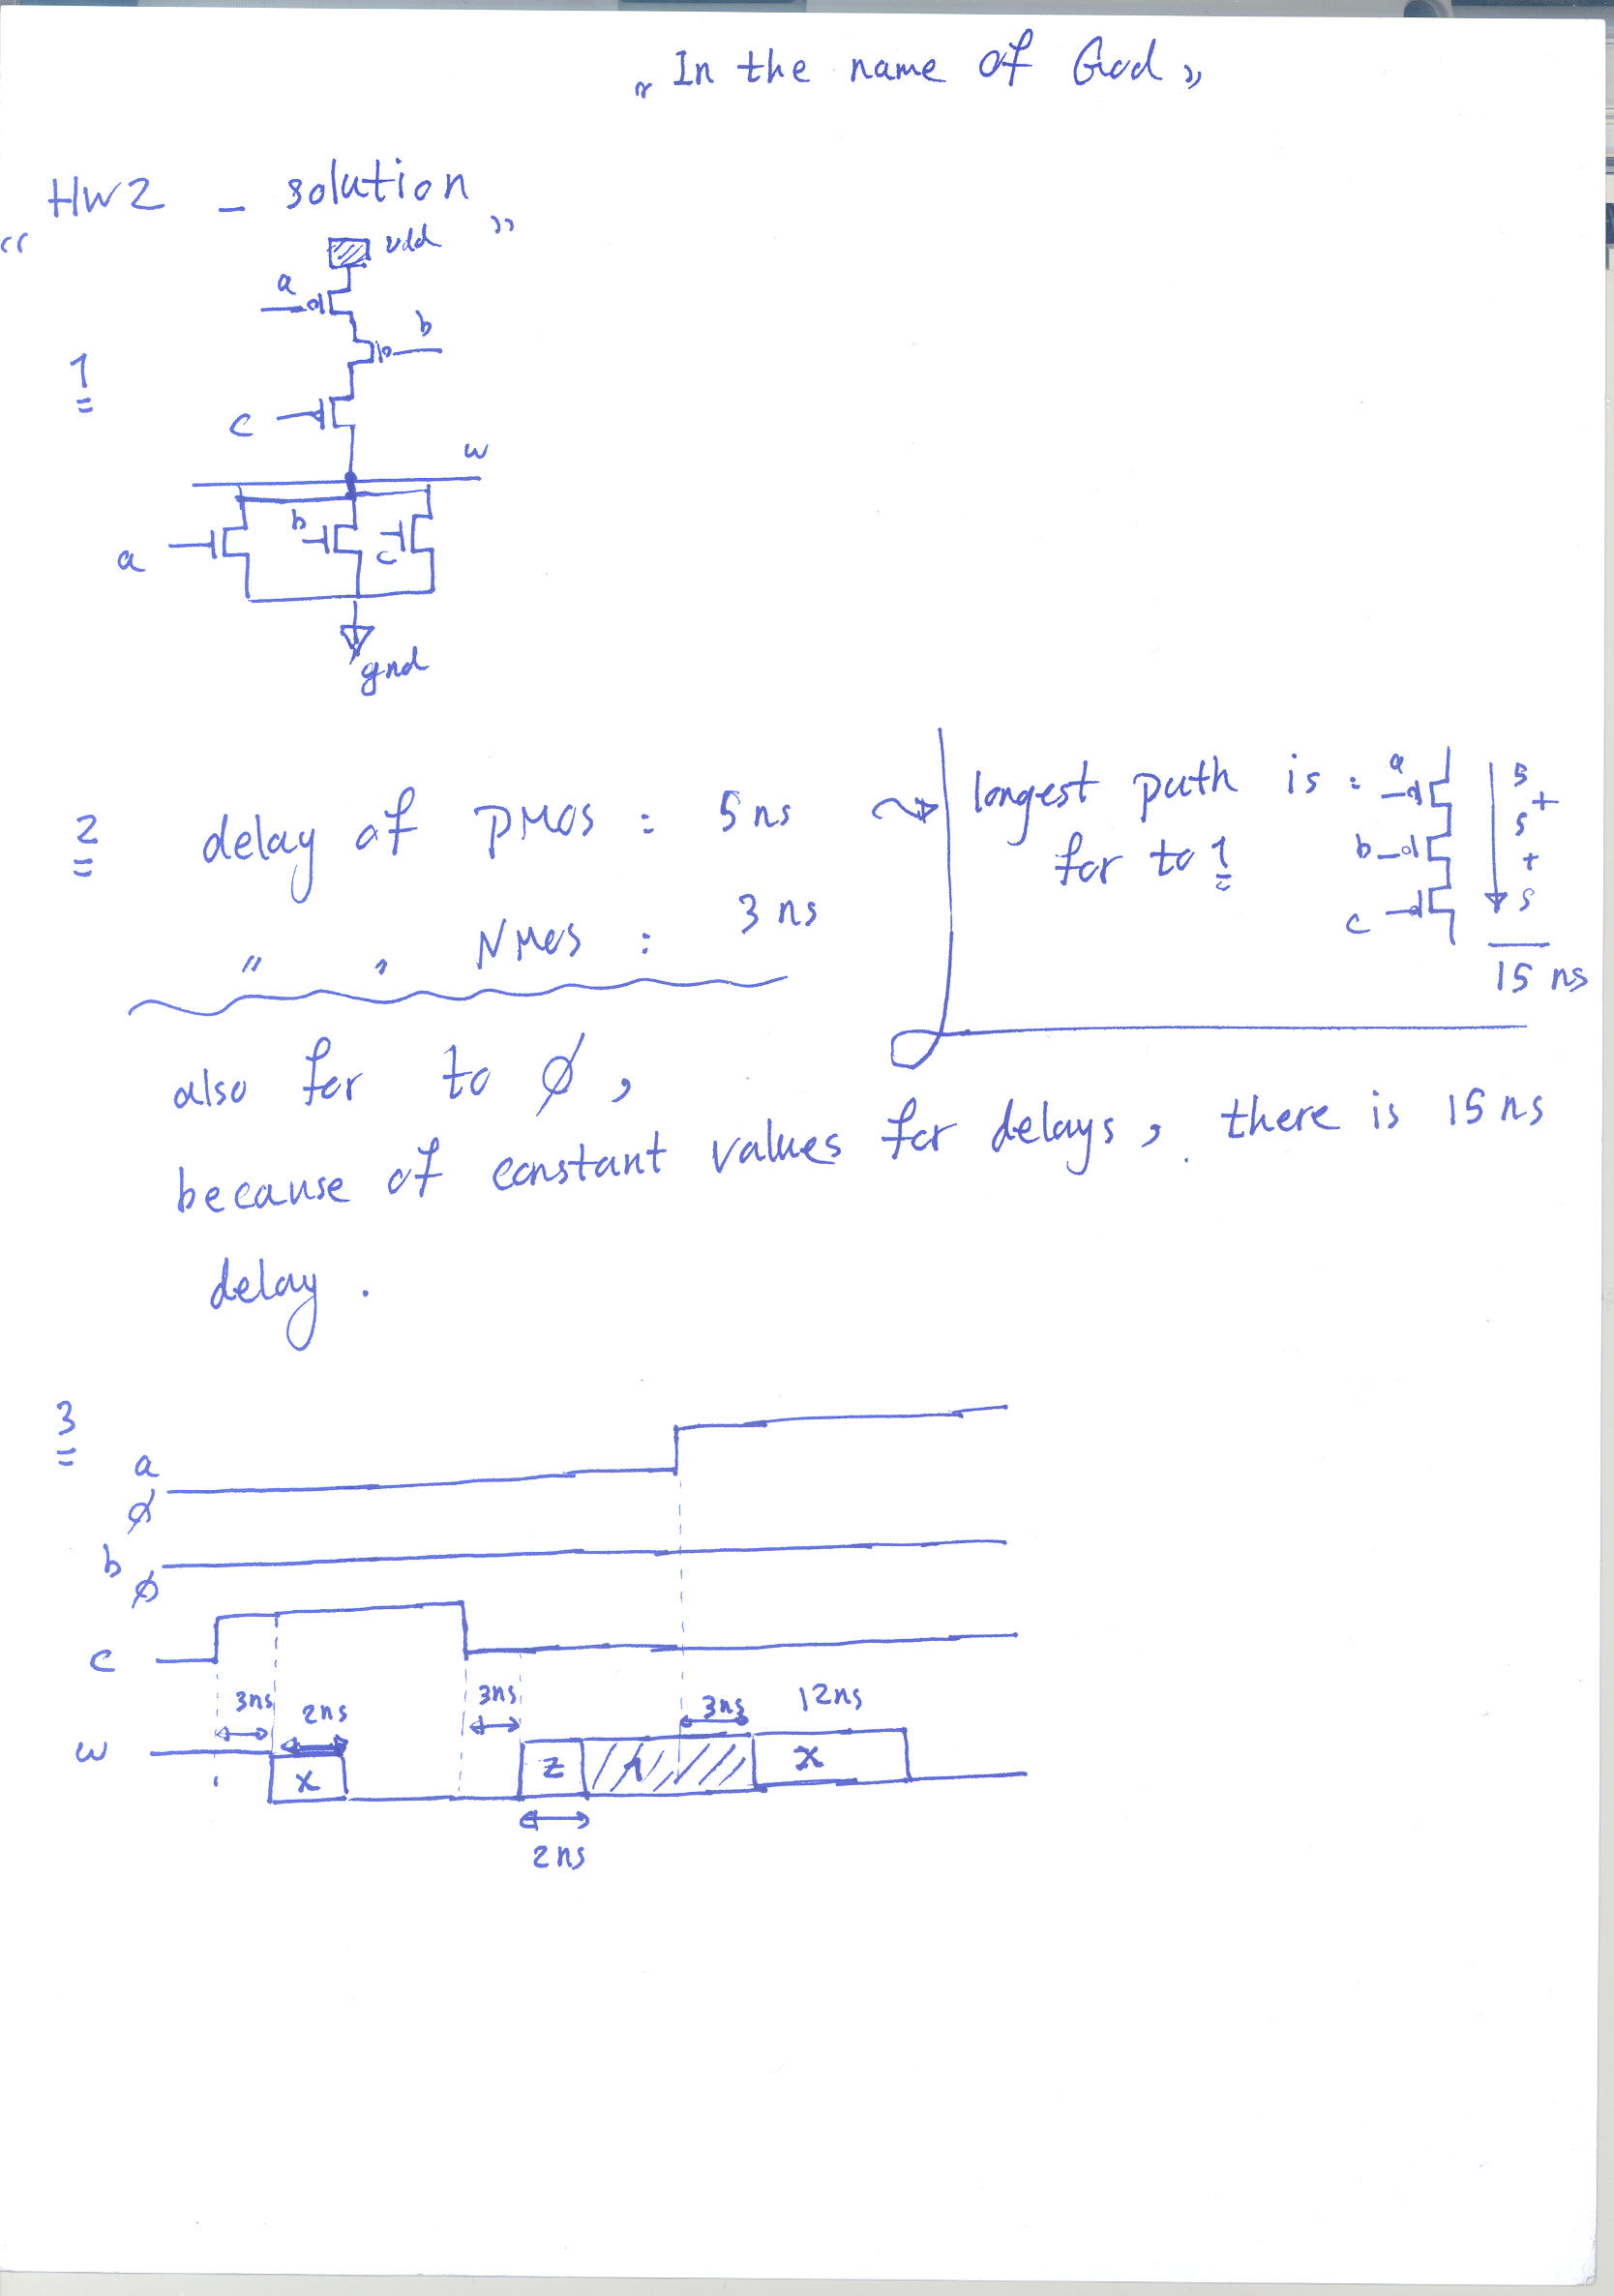 " In the name of God "
" HW2 - solution "
vdd
a
b
1
c
w
a
b
c
gnd
2
delay of PMOS : 5ns
" , NMOS : 3 ns
longest path is :
for to 1
a
b
c
5
+
5
+
5
15 ns
also for to ∅,
because of constant values for delays, there is 15ns
delay .
3
a
∅
b
∅
c
3ns
2ns
3ns
3ns
12ns
w
x
z
x
2ns